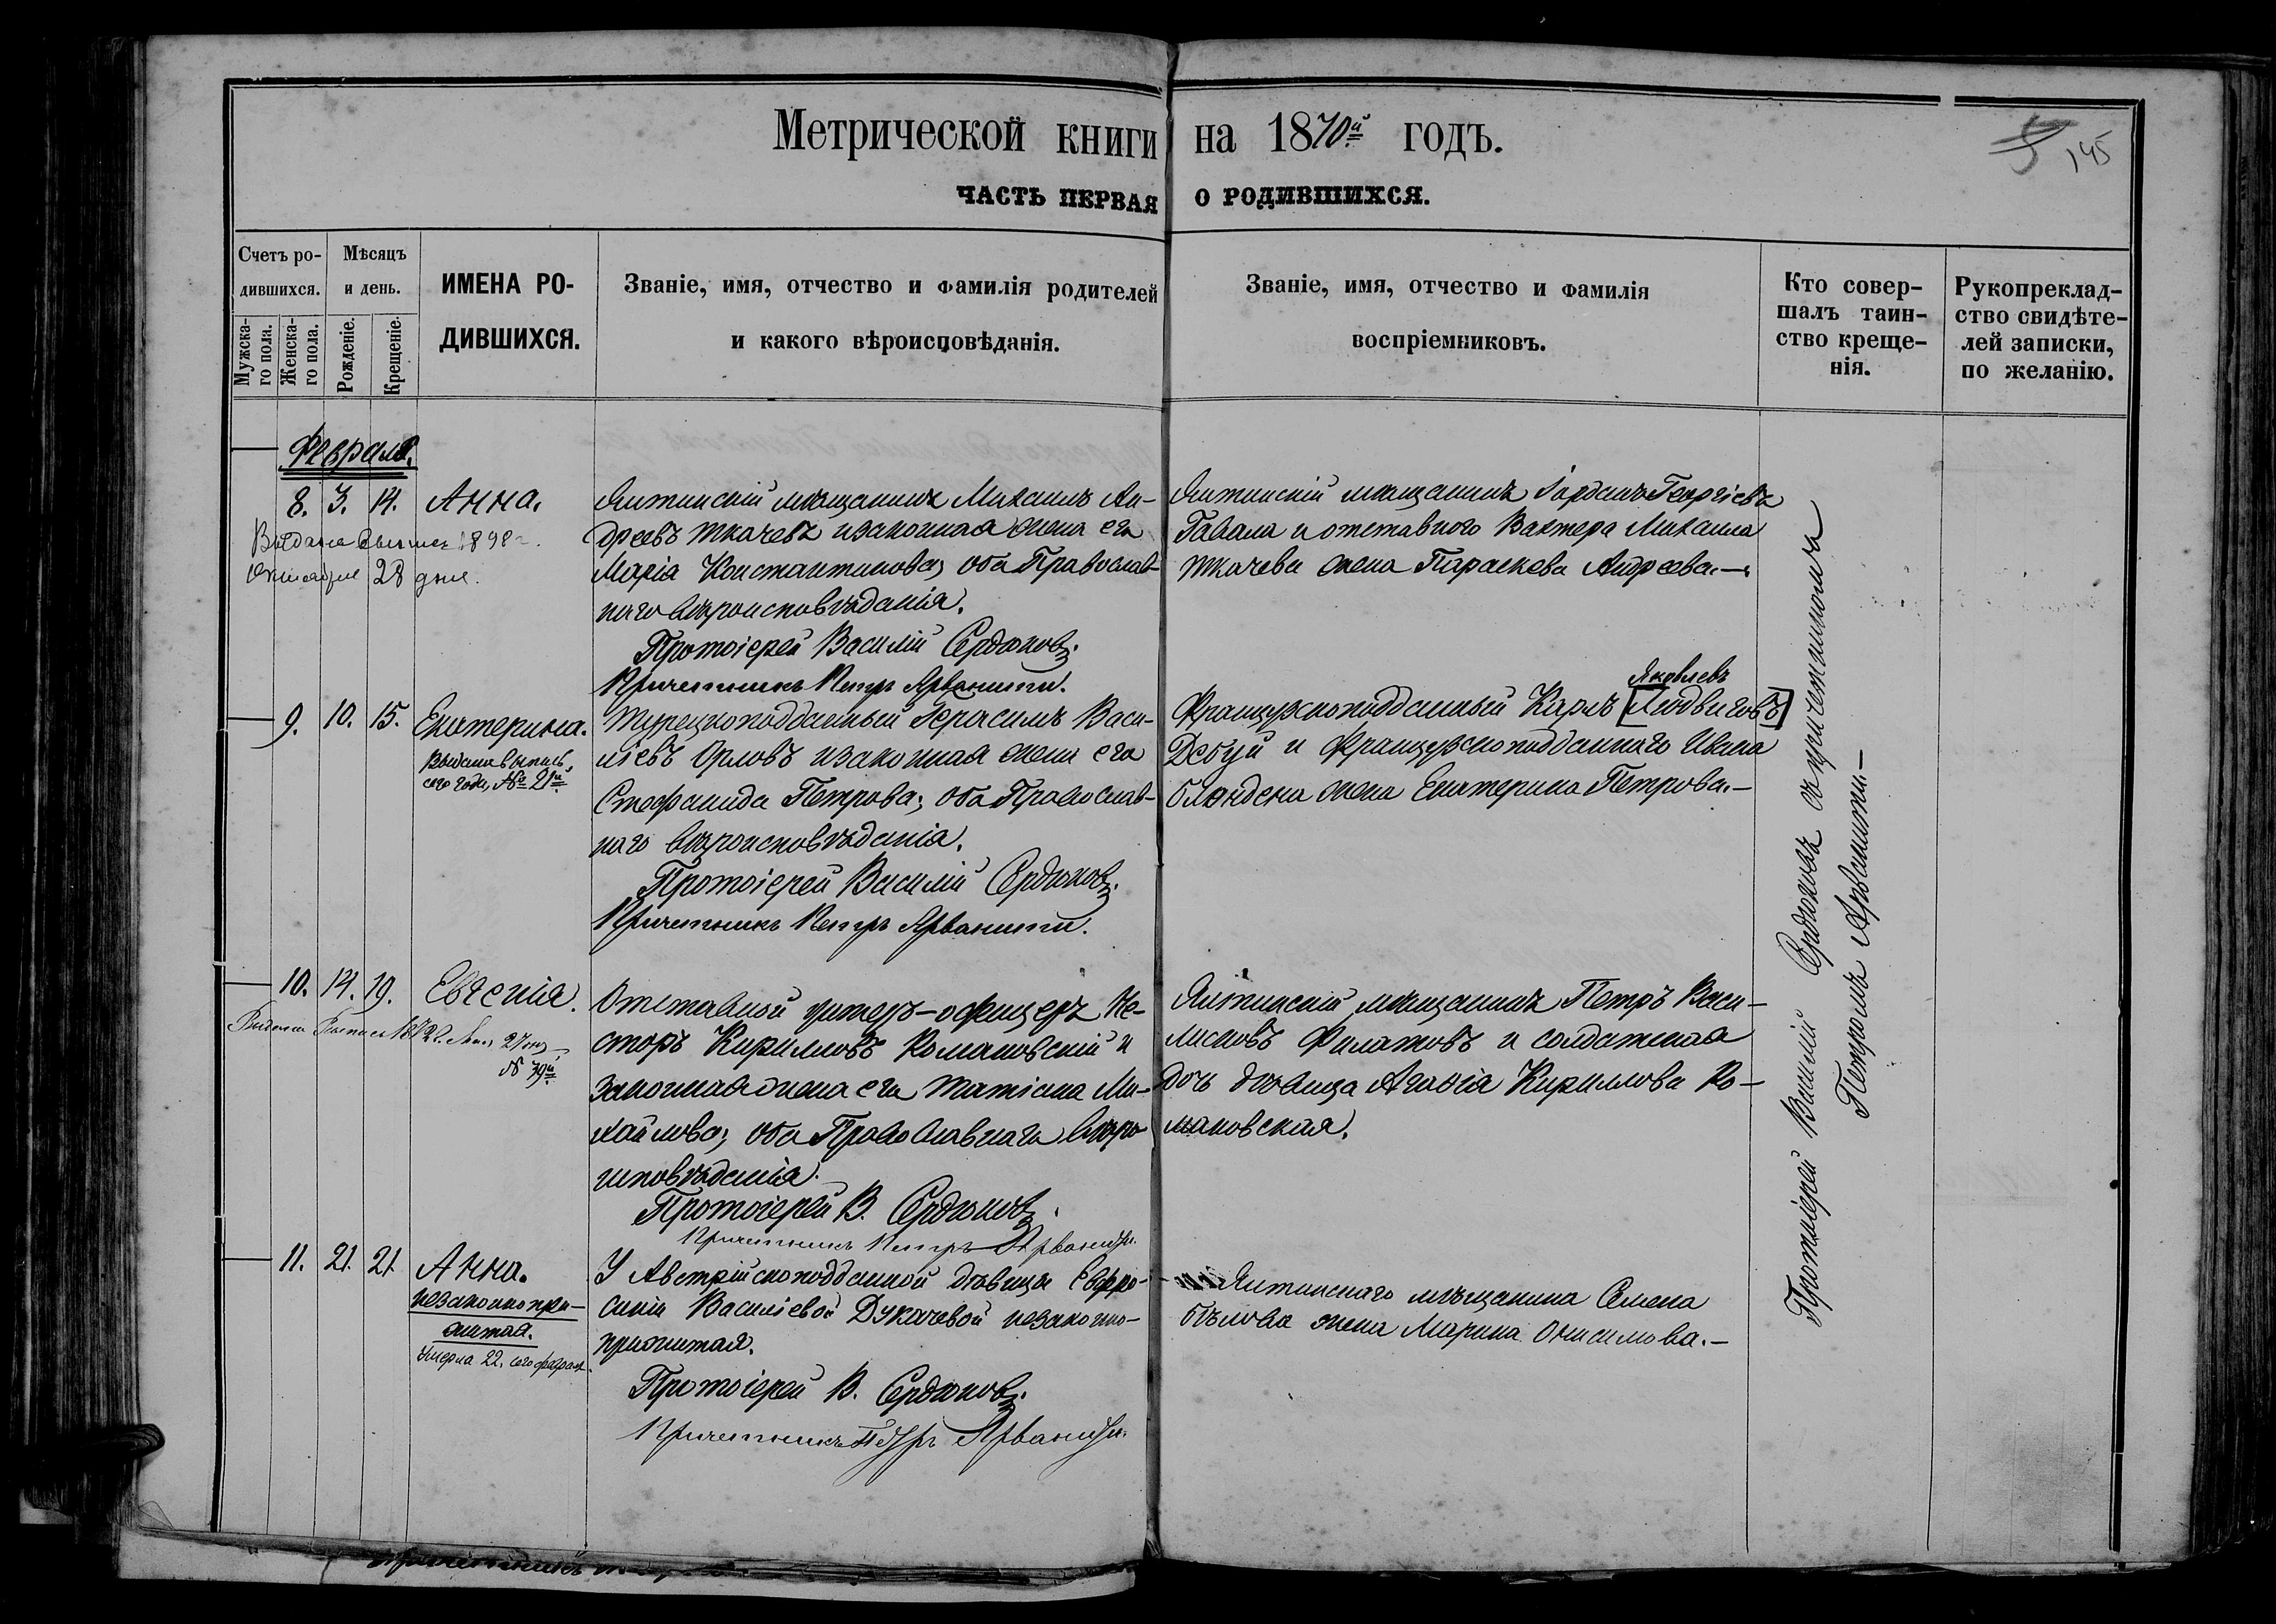 Метрической книги на 1870й годъ.
5 145
ЧАСТЬ ПЕРВАЯ О РОДИВШИХСЯ.
Счетъ ро-
дившихся.
Мужска-
го пола.
Женска-
го пола.
Мѣсяцъ
и день.
Рожденіе.
Крещеніе.
ИМЕНА РО-
ДИВШИХСЯ.
Званіе, имя, отчество и фамилія родителей
и какого вѣроисповѣданія.
Званіе, имя, отчество и фамилія
воспріемниковъ.
Кто совер-
шалъ таин-
ство креще-
нія.
Рукопреклад-
ство свидѣте-
лей записки,
по желанію.
Февраля.
8. 3. 14. Анна.
Выдана выпись 1898 г.
Октября 28 дня.
Ялтинскій мѣщанинъ Михаилъ Ан-
дреевъ Ткачевъ изаконная жена его
Марія Константинова; оба Православ-
наго вѣроисповѣданія.
Протоіерей Василій Сердюковъ.
Причетникъ Петръ Арванити.
Ялтинскій мѣщанинъ Іорданъ Георгіевъ
Гавала и отставного Вахтера Михаила
Ткачева жена Параскева Андреева.—
9. 10. 15. Екатерина.
Выдана выпись,
сего года, № 21й
Турецкоподданный Герасимъ Васи-
ліевъ Орловъ изаконная жена его
Стефанида Петрова; оба Православ-
наго вѣроисповѣданія.
Протоіерей Василій Сердюковъ.
Причетникъ Петръ Арванити.
Яковлевъ
Французскоподданный Карлъ [Людвиговъ]
Дебуи и Французскоподданнаго Ивана
Бляндена жена Екатерина Петрова.—
10. 14. 19. Евгенія.
Выдана Выпись 1872 г.
№ 39й
Отставной унтеръ-офицеръ Не-
сторъ Кирилловъ Романовскій и
законная жена его Татіана Ми-
хайлова; оба Православнаго вѣро
исповѣданія.
Протоіерей В. Сердюковъ.
Причетникъ Петръ Арванити.
Ялтинскій мѣщанинъ Петръ Васи-
лисковъ Филатовъ и солдатская
дочь дѣвица Агафія Кириллова Ро-
мановская.
11. 21. 21 Анна.
незаконнопри-
житая.
Умерла 22. сего февраля.
У Австрійскоподданной дѣвицы Евфро-
синіи Василіевой Дукачевой незаконно-
прижитая.
Протоіерей В. Сердюковъ.
Причетникъ Петръ Арванити.
Ялтинскаго мѣщанина Семена
Бѣлова жена Марина Онисимова.—
Протоіерей Василій Сердюковъ съ причетникомъ
Петромъ Арванити.—